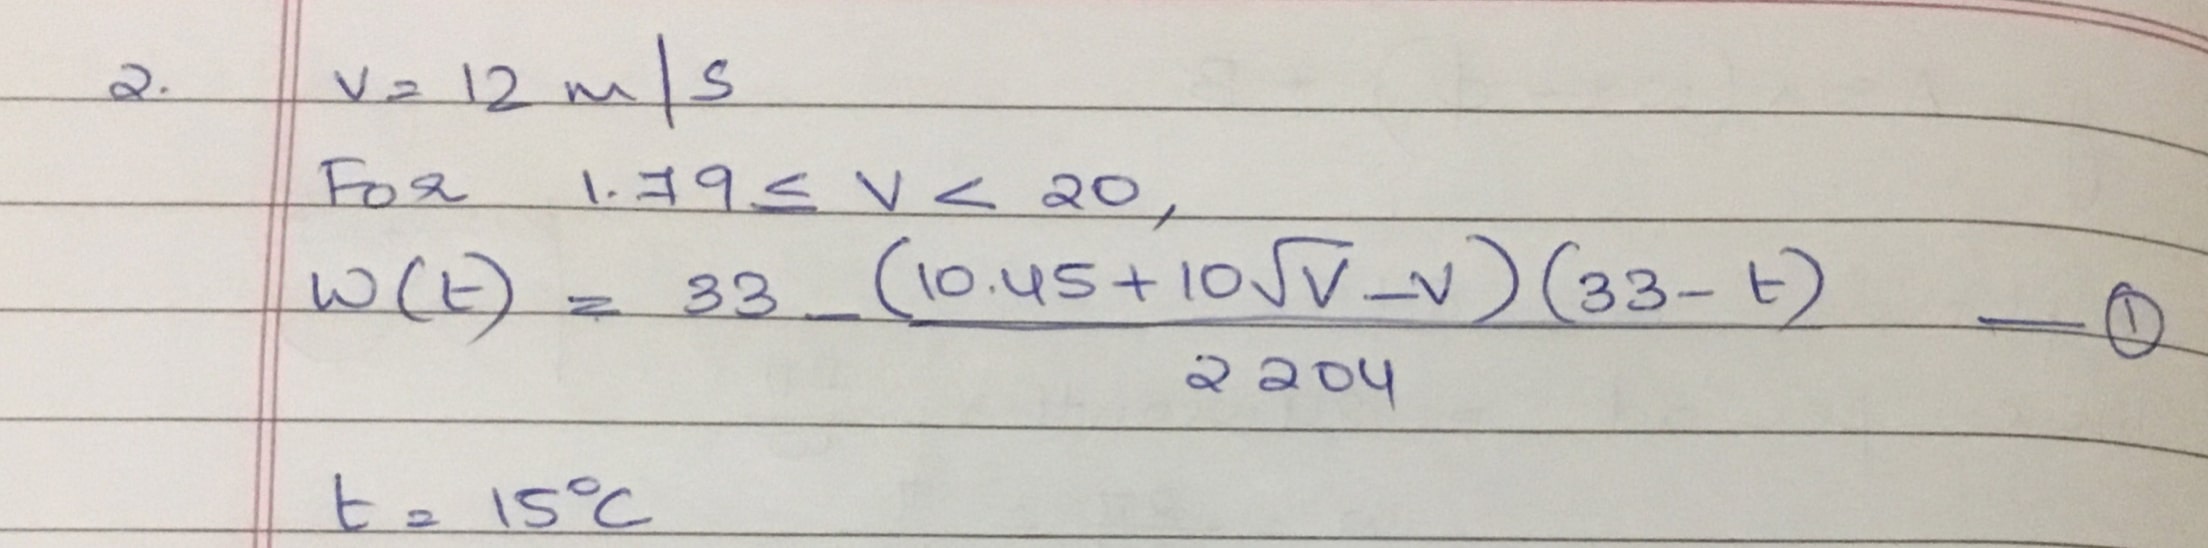 2. V = 12 m/s
For 1.79 ≤ V < 20,
W(t) = 33 - (10.45 + 10√V - V)(33 - t) — ①
2204
t = 15°C